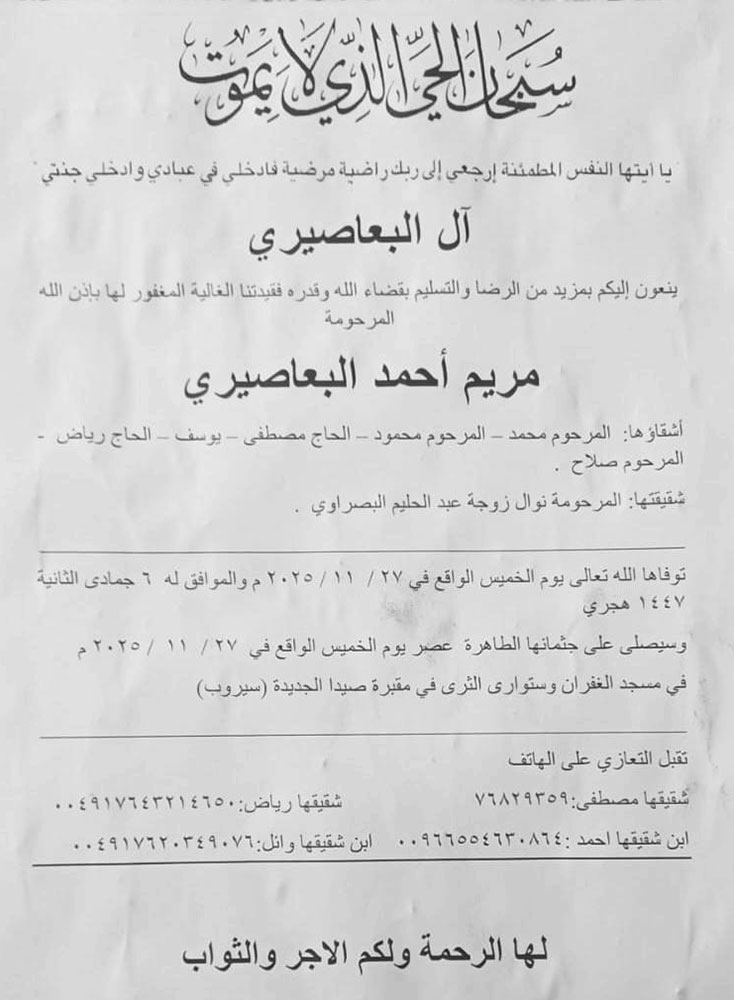 سُبْحَانَ الحَيِّ الَّذِي لَا يَمُوتُ
يا أيتها النفس المطمئنة إرجعي إلى ربك راضية مرضية فادخلي في عبادي وادخلي جنتي
آل البعاصيري
ينعون إليكم بمزيد من الرضا والتسليم بقضاء الله وقدره فقيدتنا الغالية المغفور لها بإذن الله
المرحومة
مريم أحمد البعاصيري
أشقاؤها: المرحوم محمد – المرحوم محمود – الحاج مصطفى – يوسف – الحاج رياض -
المرحوم صلاح .
شقيقتها: المرحومة نوال زوجة عبد الحليم البصراوي .
توفاها الله تعالى يوم الخميس الواقع في ٢٧ / ١١ / ٢٠٢٥ م والموافق له ٦ جمادى الثانية
١٤٤٧ هجري
وسيصلى على جثمانها الطاهرة عصر يوم الخميس الواقع في ٢٧ / ١١ / ٢٠٢٥ م
في مسجد الغفران وستوارى الثرى في مقبرة صيدا الجديدة (سيروب)
تقبل التعازي على الهاتف
شقيقها مصطفى:٧٦٨٢٩٣٥٩ شقيقها رياض:٠٠٤٩١٧٦٤٣٢١٤٦٥٠
ابن شقيقها احمد :٠٠٩٦٦٥٥٤٦٣٠٨٦٤ ابن شقيقها وائل:٠٠٤٩١٧٦٢٠٣٤٩٠٧٦
لها الرحمة ولكم الاجر والثواب